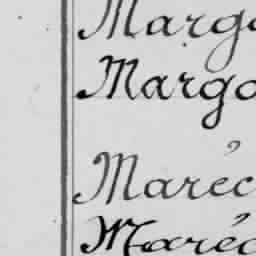 Margo
Margo
Maréc
Maréc